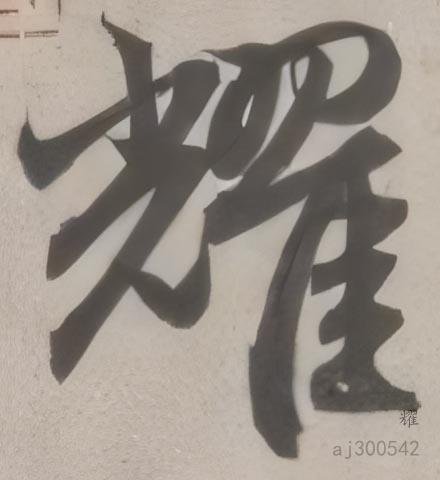 耀
耀
aj300542